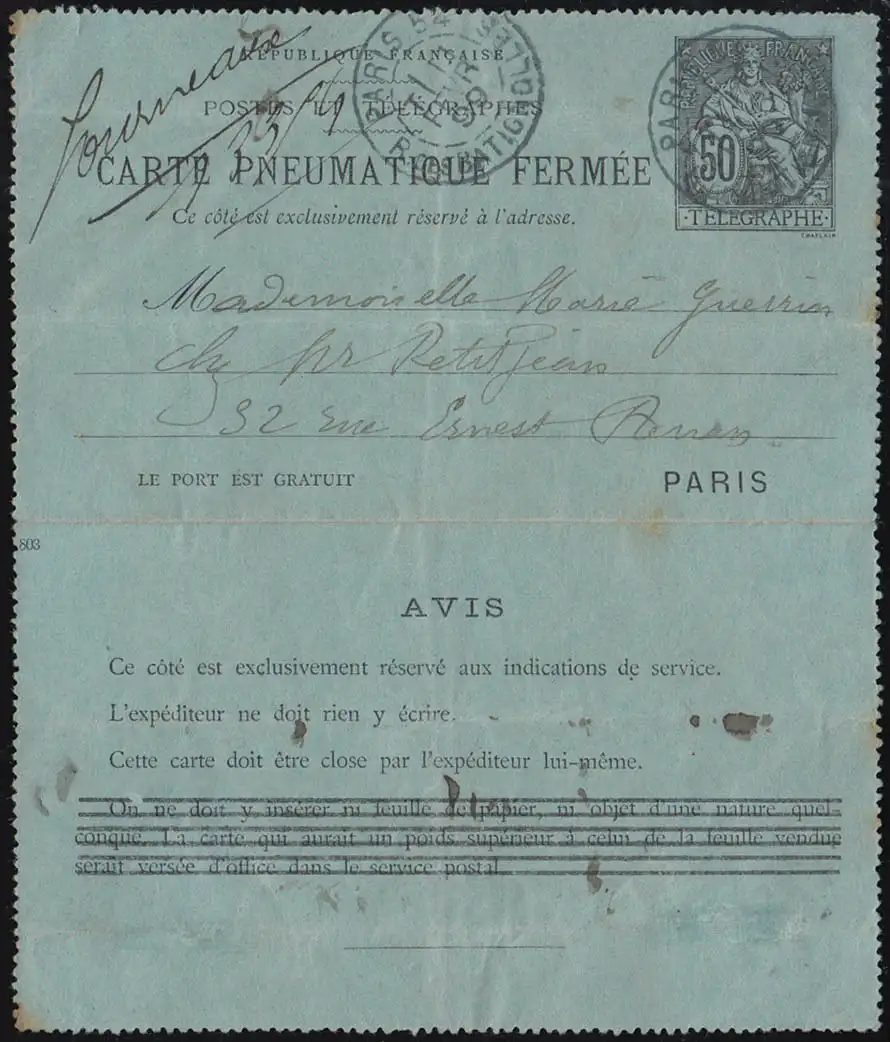 Fourneaux
RÉPUBLIQUE FRANÇAISE
POSTES ET TÉLÉGRAPHES
CARTE PNEUMATIQUE FERMÉE
Ce côté est exclusivement réservé à l'adresse.
PARIS 54
FEVR
99
R. DES BATIGNOLLES
PARIS
RÉPUBLIQUE FRANÇAISE
50
TÉLÉGRAPHE
CHAPLAIN
Mademoiselle Marie Guerrin
chez Mr Petitjean
32 rue Ernest Renan
LE PORT EST GRATUIT
PARIS
803
AVIS
Ce côté est exclusivement réservé aux indications de service.
L'expéditeur ne doit rien y écrire.
Cette carte doit être close par l'expéditeur lui-même.
On ne doit y insérer ni feuille de papier, ni objet d'une nature quel-
conque. La carte qui aurait un poids supérieur à celui de la feuille vendue
serait versée d'office dans le service postal